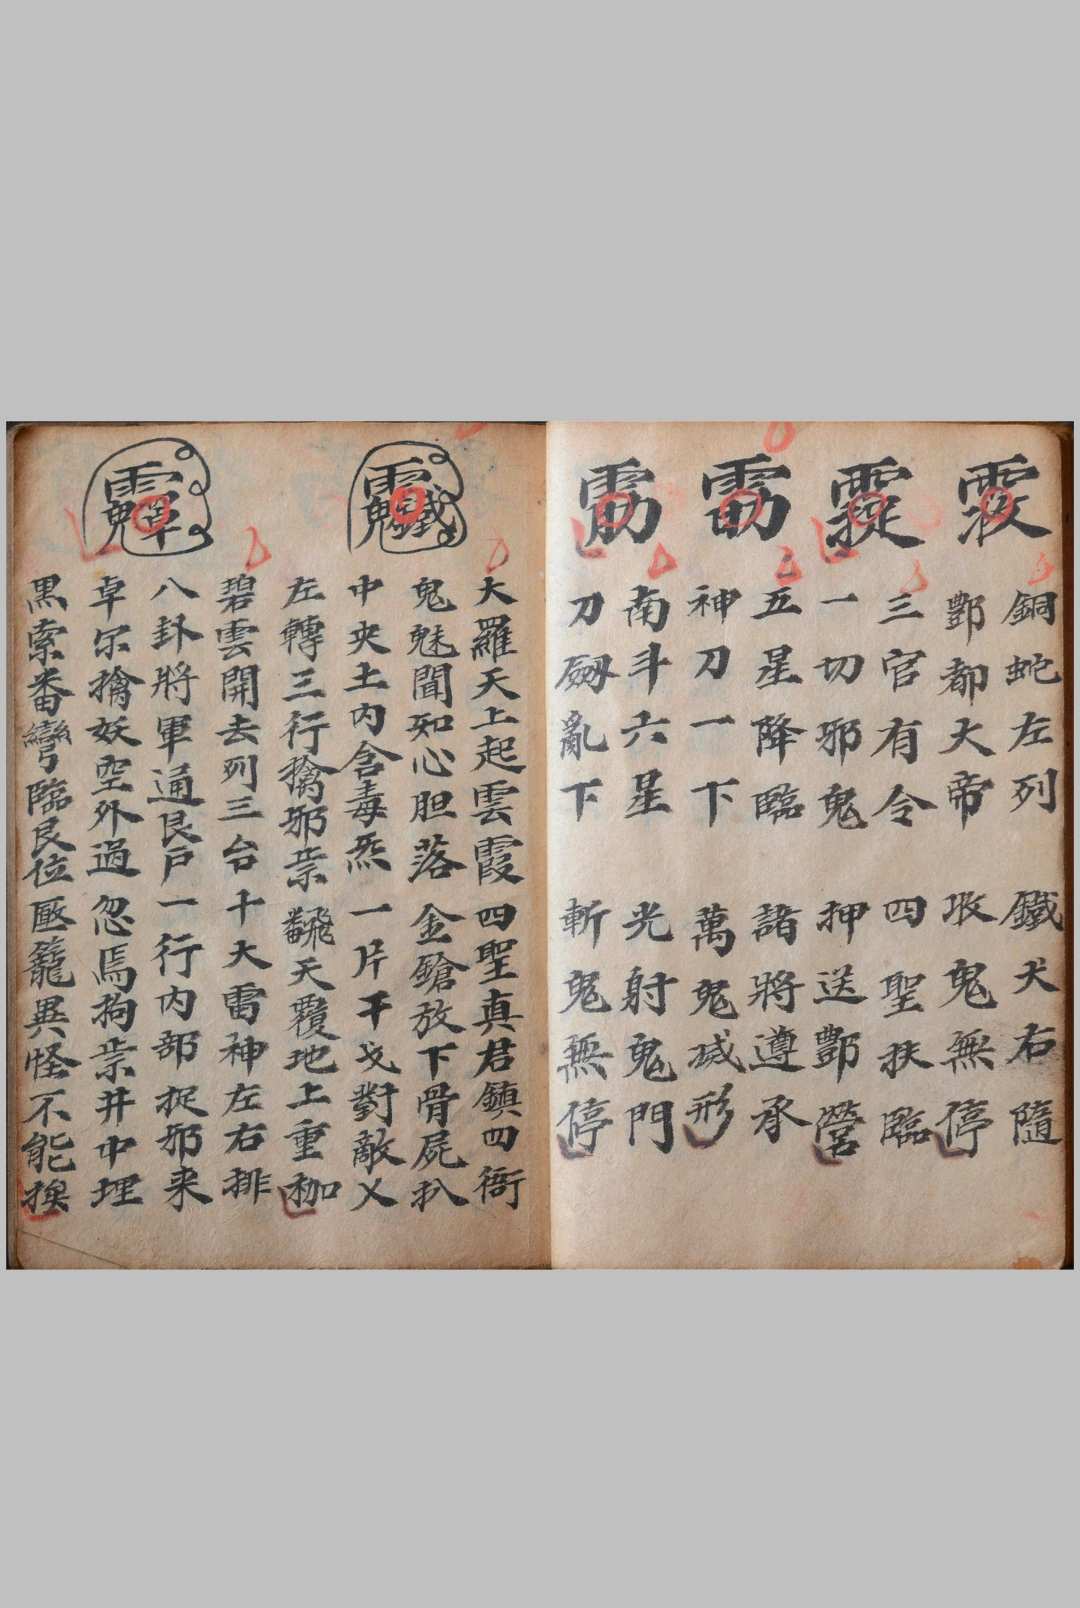 銅蛇左列 鐵犬右隨
酆都大帝 收鬼無停
三官有令 四聖扶臨
一切邪鬼 押送酆營
五星降臨 諸將遵承
神刀一下 萬鬼滅形
南斗六星 光射鬼門
刀劔亂下 斬鬼無停
大羅天上起雲霞四聖真君鎮四衙
鬼魅聞知心胆落金鎗放下骨屍扒
中央土內含毒炁一片干戈對敵乂
左轉三行擒邪祟飜天覆地上重枷
碧雲開去列三台十大雷神左右排
八卦將軍通艮戶一行內部捉邪来
卓尔擒妖空外過忽焉拘祟井中埋
黑索番彎臨艮位匧籠異怪不能挨